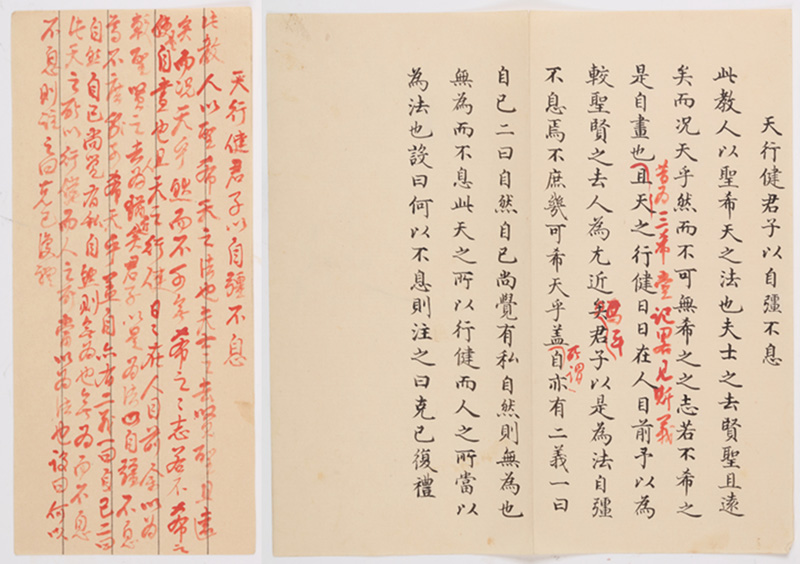 天行健君子以自彊不息
此教人以聖希天之法也夫士之去賢聖且遠
矣而況天乎然而不可無希之之志若不希之
是自畫也且天之行健日日在人目前予以為
昔為三希堂記畧見斯義
較聖賢之去人為尤近矣君子以是為法自彊
焉耳
不息焉不庶幾可希天乎蓋自亦有二義一曰
所謂
自己二曰自然自己尚覺有私自然則無為也
無為而不息此天之所以行健而人之所當以
為法也設曰何以不息則注之曰克己復禮
天行健君子以自彊不息
此教人以聖希天之法也夫士之去賢聖且遠
矣而況天乎然而不可無希之之志若不希之
是自畫也且天之行健日日在人目前余以為
較聖賢之去人為尤近矣君子以是為法自彊不息
焉不庶幾可希天乎蓋自亦有二義一曰自己二曰
自然自己尚覺有私自然則無為也無為而不息
此天之所以行健而人之所當以為法也設曰何以
不息則注之曰克己復禮